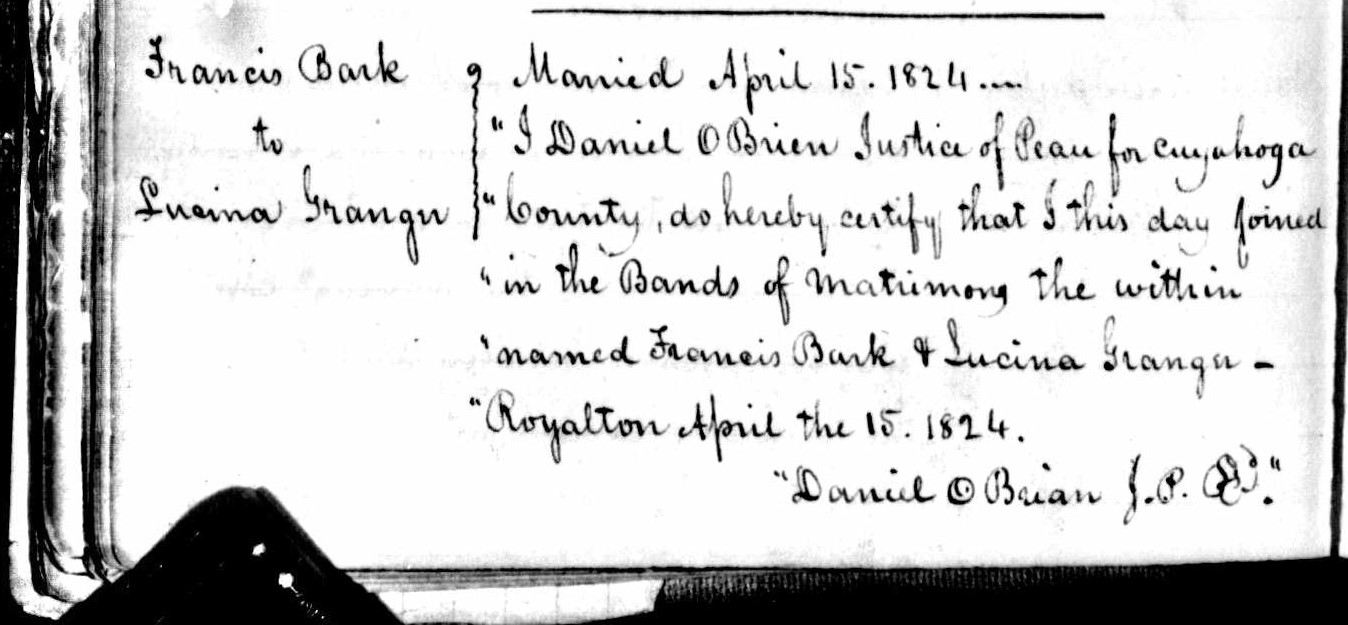 Francis Bark } Married April 15. 1824....
to
"I Daniel O Brien Justice of Peace for Cuyahoga
Lucina Granger "County, do hereby certify that I this day joined
"in the Bands of Matrimony the within
"named Francis Bark & Lucina Granger -
"Royalton April the 15. 1824.
"Daniel O Brian J.P.